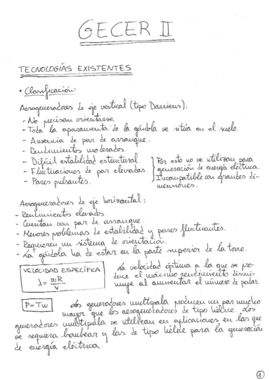 GECER II
TECNOLOGÍAS EXISTENTES
• Clasificación:
Aerogeneradores de eje vertical (tipo Darrieus):
- No precisan orientarse
- Toda la aparamenta de la góndola se sitúa en el suelo.
- Ausencia de par de arranque.
- Rendimientos moderados.
- Difícil estabilidad estructural.
- Fluctuaciones de par elevadas.
- Pares pulsantes.
Por esto no se utilizan para
generación de energía eléctrica.
Incompatible con grandes di-
mensiones.
Aerogeneradores de eje horizontal:
- Rendimientos elevados
- Cuentan con par de arranque
- Menores problemas de estabilidad y pares fluctuantes.
- Requieren un sistema de orientación.
- La góndola ha de estar en la parte superior de la torre.
VELOCIDAD ESPECÍFICA
λ = ωR/v
La velocidad óptima a la que se pro-
duce el máximo rendimiento dismi-
nuye al aumentar el número de palas.
P = Tω
Los generadores multipala producen un par mucho
mayor que los aerogeneradores de tipo hélice. Los
generadores multipala se utilizan en aplicaciones en las que
se requiera bombear y las de tipo hélice para la generación
de energía eléctrica.
1